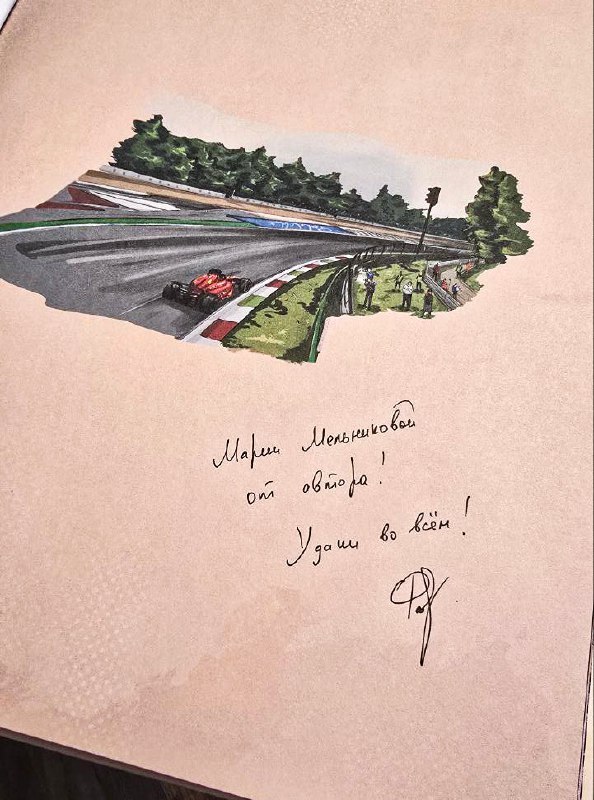 Марии Мельниковой
от автора!
Удачи во всём!